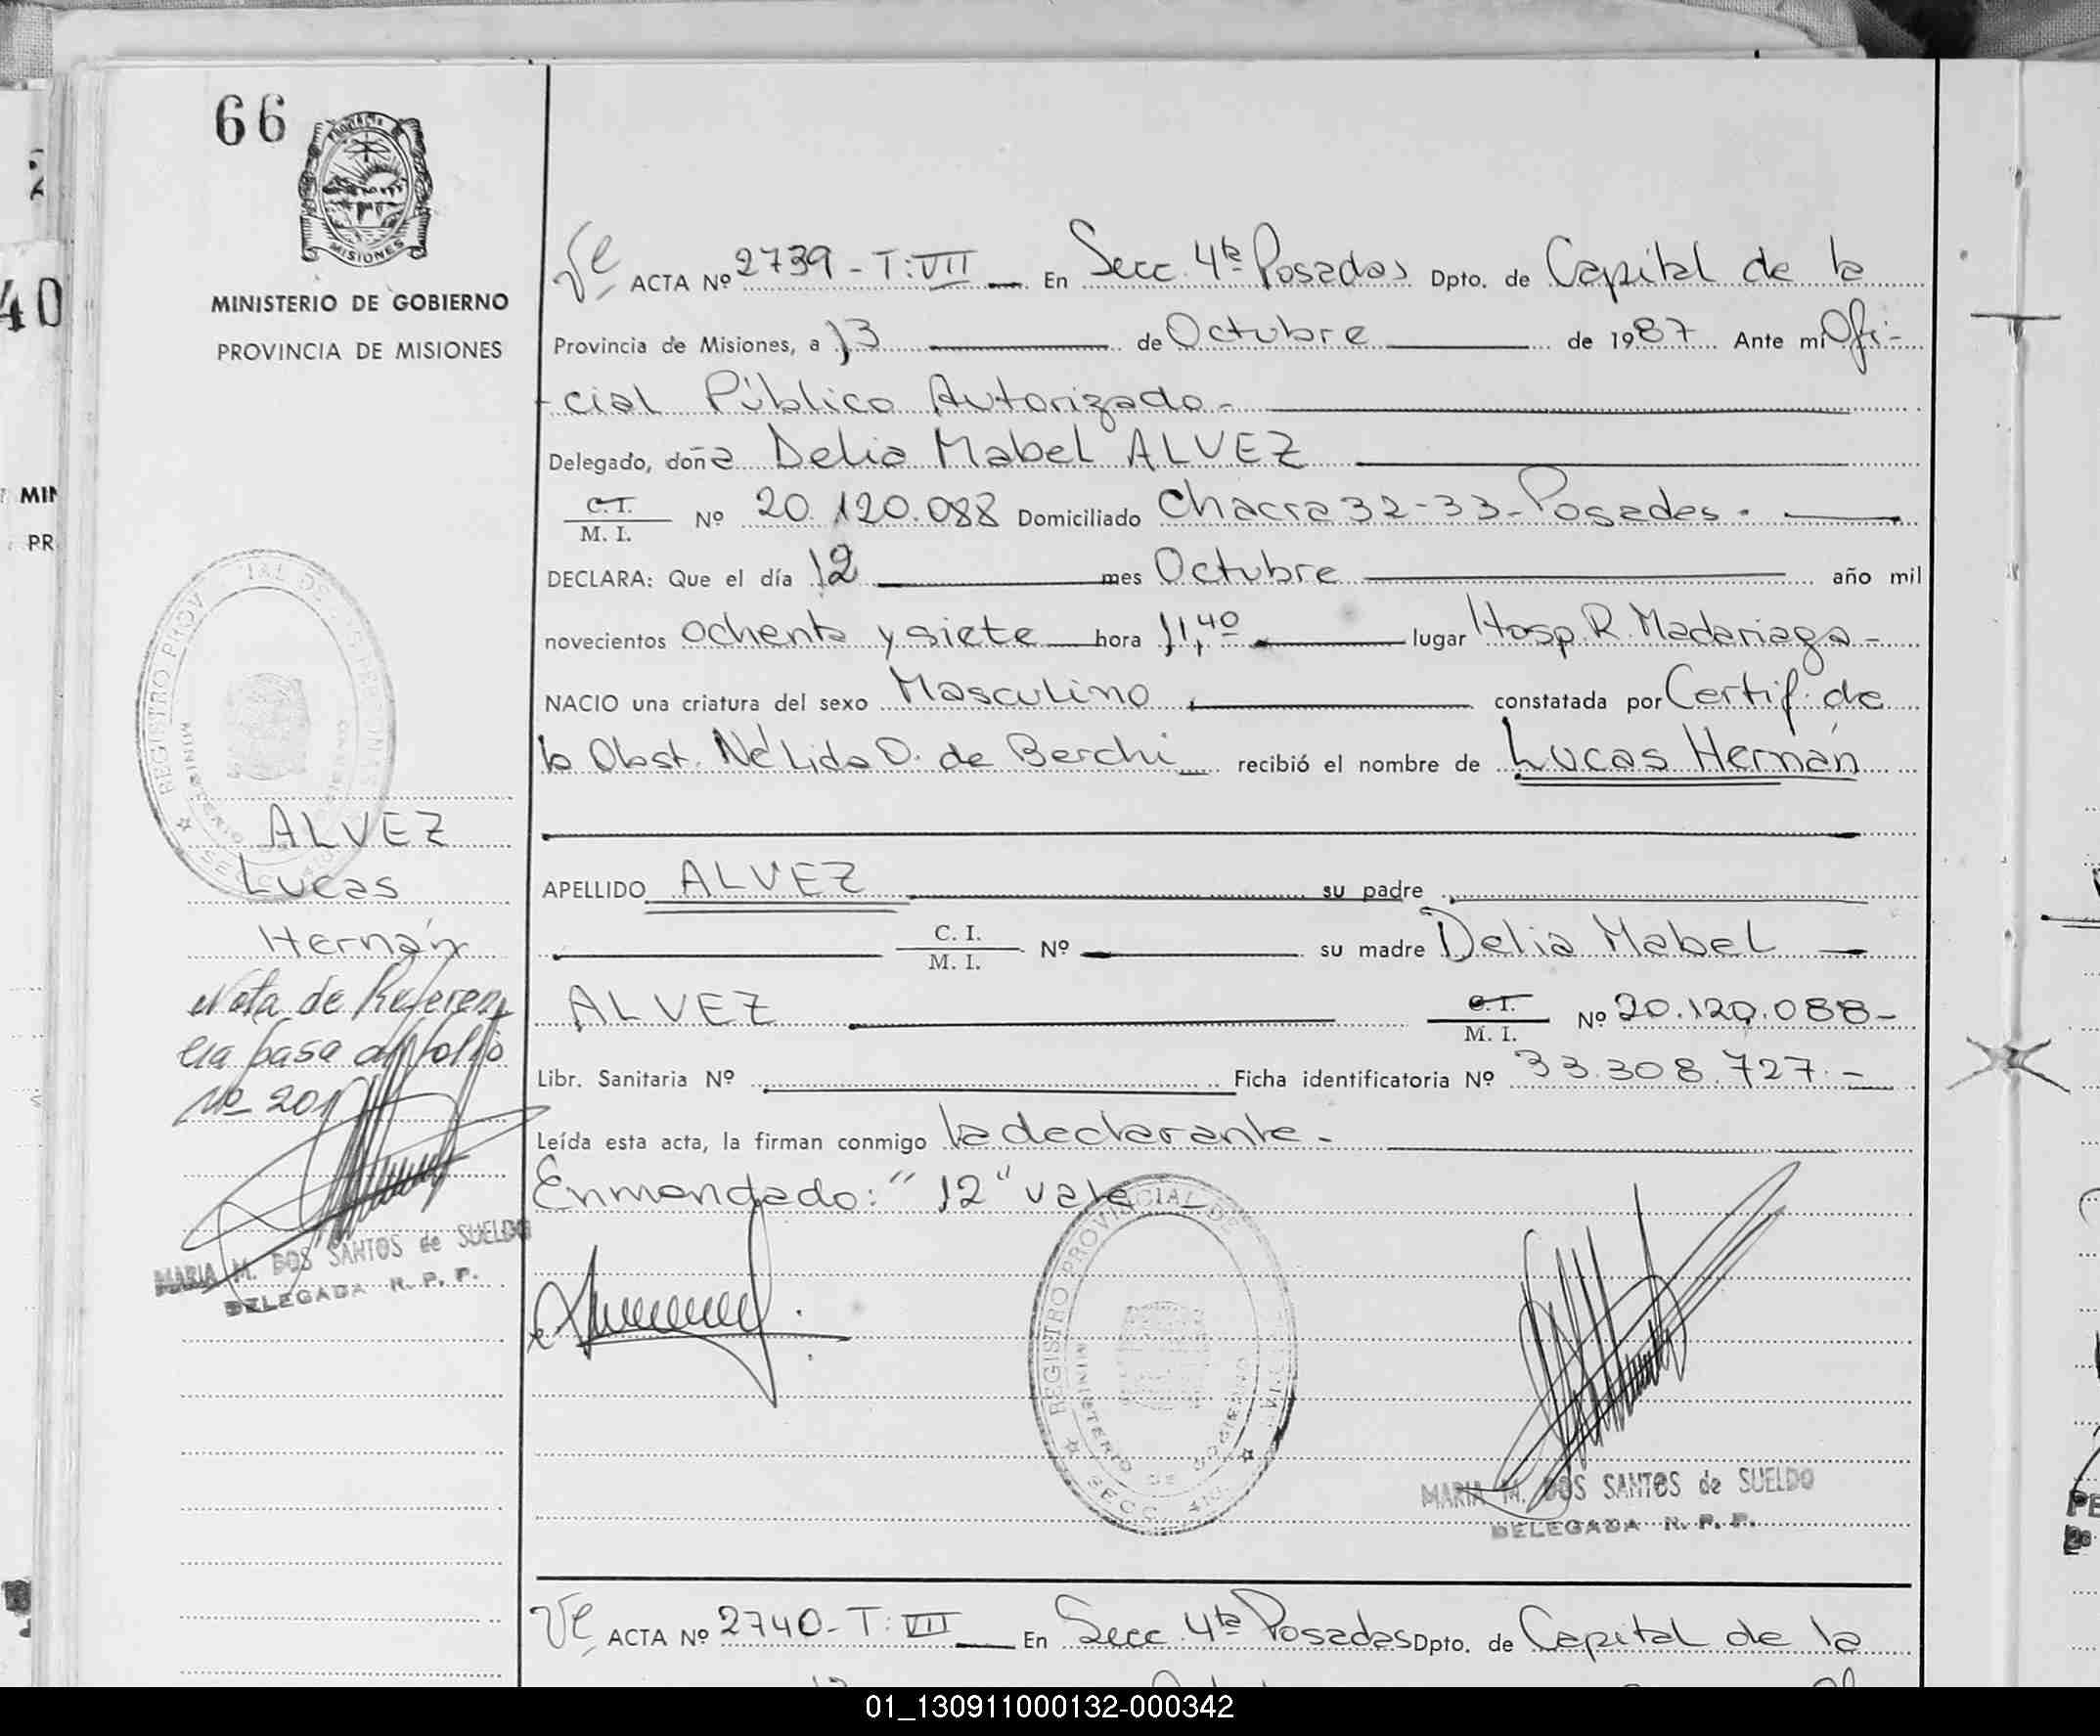 66
PROVINCIA
MISIONES
MINISTERIO DE GOBIERNO
PROVINCIA DE MISIONES
ACTA Nº 2739 - T: VII En Secc. 4ta Posadas Dpto. de Capital de la
Provincia de Misiones, a 13 de Octubre de 1987 Ante mi Ofi-
cial Público Autorizado -
Delegado, doña Delia Mabel ALVEZ
C. I.
M. I. Nº 20.120.088 Domiciliado Chacra 32-33- Posadas.
DECLARA: Que el día 12 mes Octubre año mil
novecientos ochenta y siete hora 11,40 lugar Hosp. R. Madariaga -
NACIO una criatura del sexo Masculino constatada por Certif. de
la Obst. Nélida O. de Berchi recibió el nombre de Lucas Hernán
APELLIDO ALVEZ su padre
C. I.
M. I. Nº su madre Delia Mabel
ALVEZ C. I.
M. I. Nº 20.120.088-
Libr. Sanitaria Nº Ficha identificatoria Nº 33.308.727.-
Leída esta acta, la firman conmigo la declarante.
Enmendado: "12" vale
ALVEZ
Lucas
Hernán
Nota de Referen
cia pasa al folio
Nº 201
MARIA M. DOS SANTOS de SUELDO
DELEGADA R. P. P.
MARIA M. DOS SANTOS de SUELDO
DELEGADA R. P. P.
ACTA Nº 2740- T: VII En Secc. 4ta Posadas Dpto. de Capital de la
40
MIN
PR
01_130911000132-000342